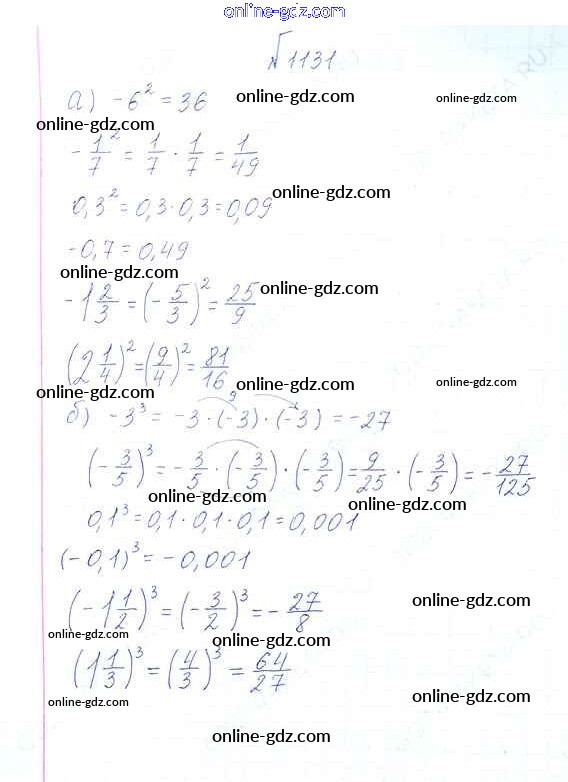 online-gdz.com
№1131
а) -6² = 36 online-gdz.com online-gdz.com
online-gdz.com
-1/7² = 1/7 · 1/7 = 1/49
online-gdz.com
0,3² = 0,3·0,3 = 0,09
-0,7 = 0,49
online-gdz.com
-1 2/3 = (-5/3)² = 25/9 online-gdz.com
(2 1/4)² = (9/4)² = 81/16
online-gdz.com online-gdz.com
9
б) -3³ = -3 · (-3) · (-3) = -27
(-3/5)³ = -3/5 · (-3/5) · (-3/5) = 9/25 · (-3/5) = -27/125
online-gdz.com online-gdz.com
0,1³ = 0,1 · 0,1 · 0,1 = 0,001
(-0,1)³ = -0,001
(-1 1/2)³ = (-3/2)³ = -27/8 online-gdz.com
online-gdz.com online-gdz.com
(1 1/3)³ = (4/3)³ = 64/27
online-gdz.com online-gdz.com
online-gdz.com